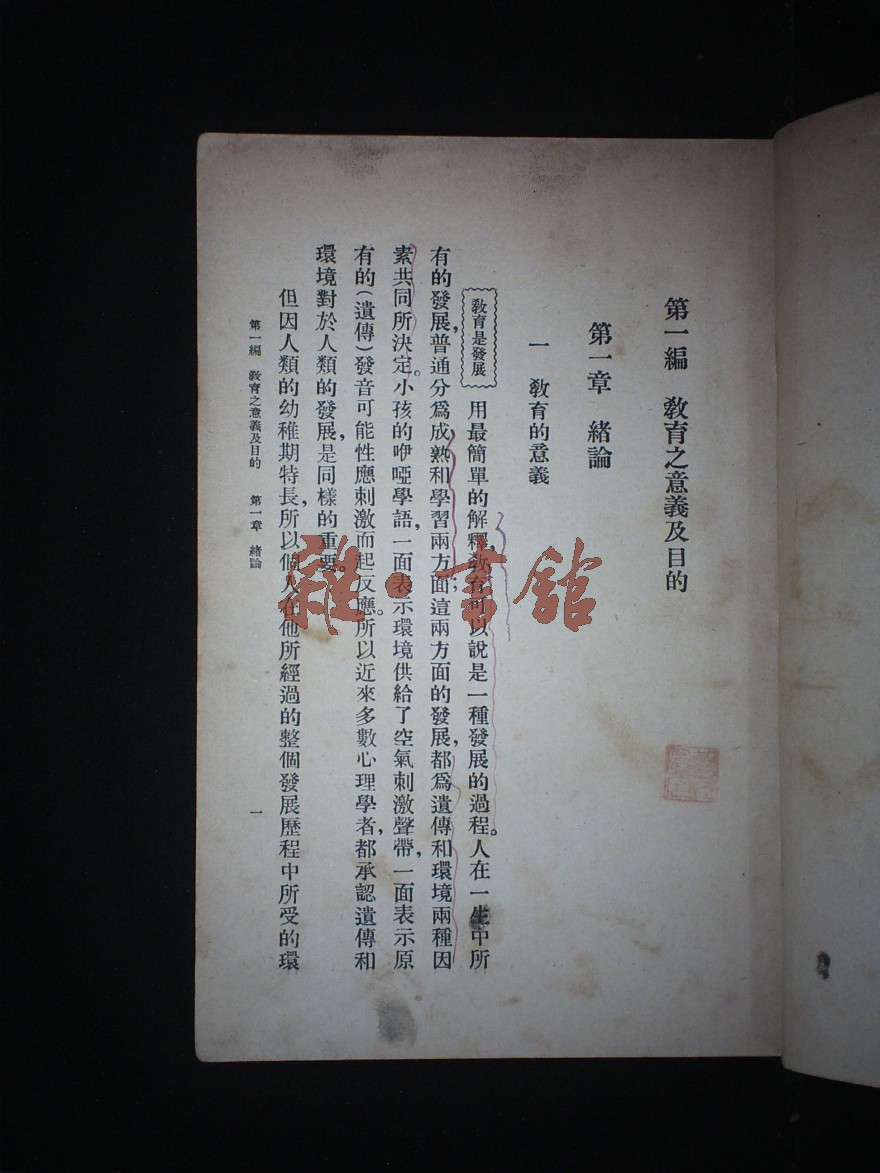 第一編　敎育之意義及目的
第一章　緒論
一　敎育的意義
敎育是發展
用最簡單的解釋，敎育可以說是一種發展的過程。人在一生中所
有的發展，普通分爲成熟和學習兩方面；這兩方面的發展，都爲遺傳和環境兩種因
素共同所決定。小孩的咿啞學語，一面表示環境供給了空氣刺激聲帶，一面表示原
有的（遺傳）發音可能性應刺激而起反應。所以近來多數心理學者，都承認遺傳和
環境對於人類的發展，是同樣的重要。
但因人類的幼稚期特長，所以個人在他所經過的整個發展歷程中所受的環
第一編　敎育之意義及目的　第一章　緒論
一
雜·書館